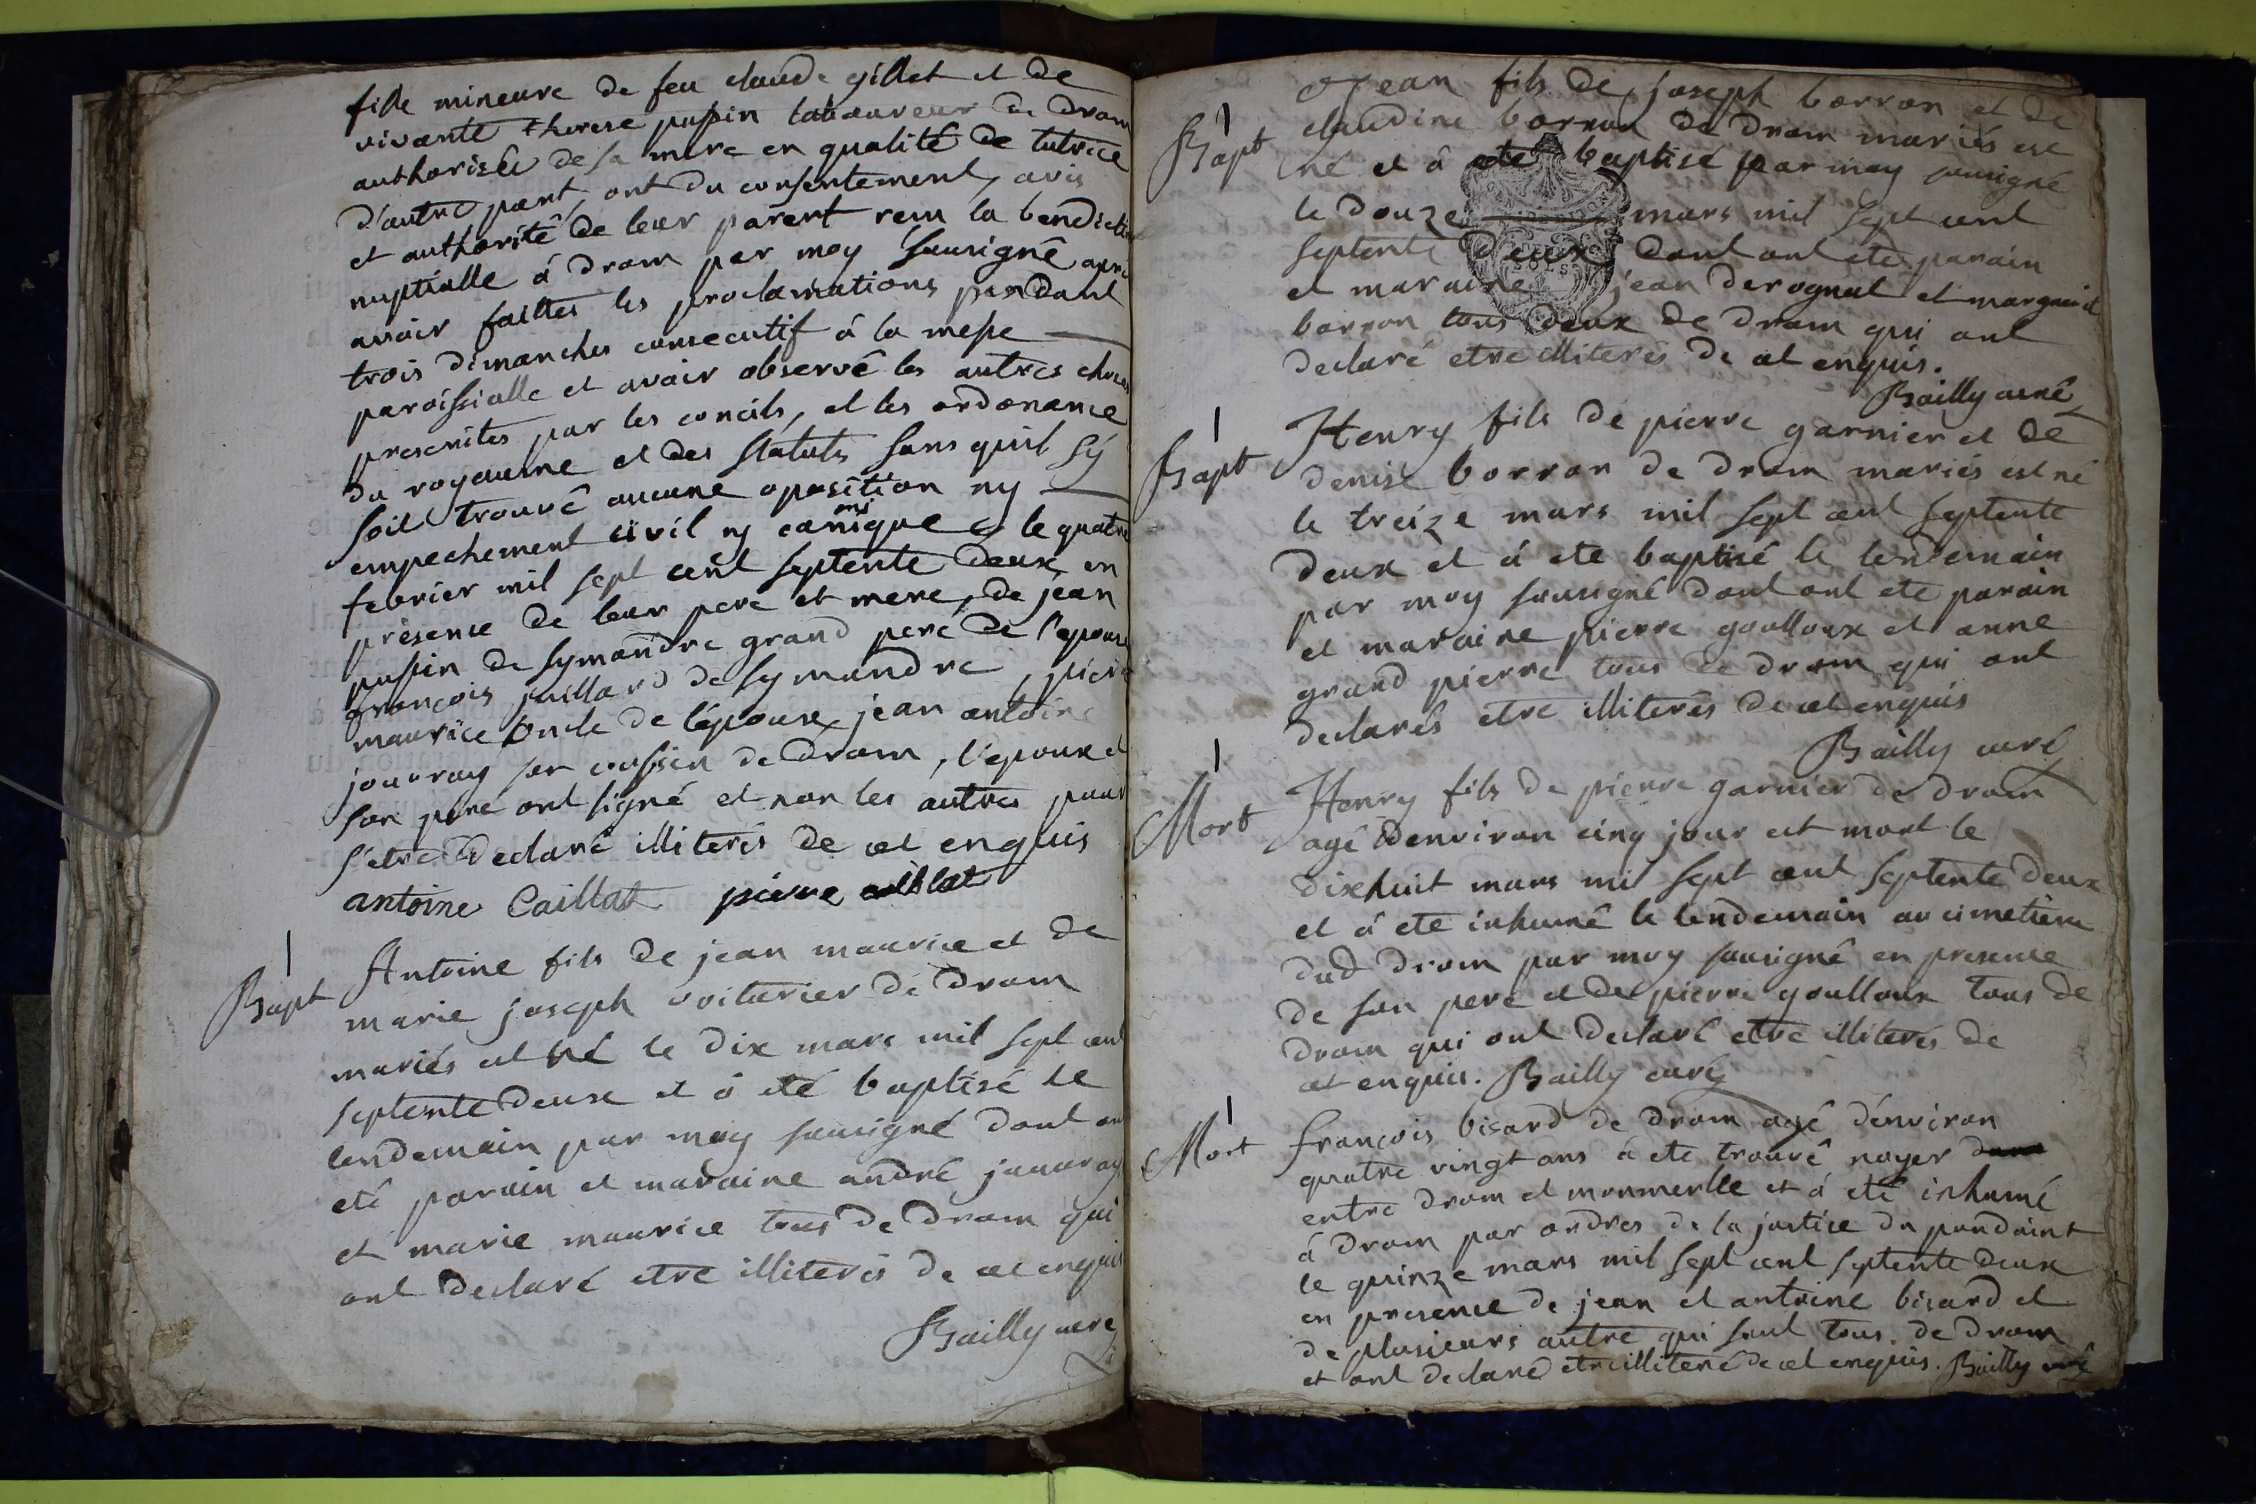 fille mineure de feu claude gillet et de
vivante therese pupin laboureur de drom
authorisée de sa mere en qualité de tutrice
d'autre part, ont du consentement, avis
et authorité de leur parent recu la benediction
nuptialle á drom par moy sousigné apres
avoir faittes les proclamations pendant
trois dimanches consecutif á la messe
paroissialle et avoir observé les autres choses
prescrites par les concils, et les ordonance
du royaume et des statuts sans quil sy
soit trouvé aucune oposition ny
empechement civil ny canonique le quatre
fevrier mil sept cent septente deux en
présence de leur pere et mere, de jean
pupin de symandre grand pere de l'epouse
françois juillard de symandre, pierre
maurice oncle de l'epouse, jean antoine
jouvray son cousin de drom, l'epoux et
son pere ont signé et non les autres pour
s'etre declaré illiterés de ce enquis
antoine Caillat pierre
Bapt
Antoine fils de jean maurice et de
marie joseph voiturier de drom
mariés est né le dix mars mil sept cent
septente deux et á eté baptisé le
lendemain par moy sousigné dont ont
eté parain et maraine andré jouvray
et marie maurice tous de drom qui
ont declaré etre illiterés de ce enquis
Bailly curé
Bapt
Jean fils de joseph borron et de
claudine borron de drom mariés est
né et á eté baptisé par moy sousigné
le douze mars mil sept cent
septente deux dont ont ete parain
et maraine jean derognat et marguerite
borron tous deux de drom qui ont
declaré etre illiterés de ce enquis.
Bailly curé
Bapt
Henry fils de pierre garnier et de
denise borron de drom mariés est né
le treize mars mil sept cent septente
deux et á ete baptisé le lendemain
par moy sousigné dont ont ete parain
et maraine pierre goulloux et anne
grand pierre tous de drom qui ont
declarés etre illiterés de ce enquis
Bailly curé
Mort
Henry fils de pierre garnier de drom
agé denviron cinq jour est mort le
dixhuit mars mil sept cent septente deux
et á ete inhumé le lendemain au cimetiere
dud drom par moy sousigné en presence
de son pere et de pierre goulloux tous de
drom qui ont declaré etre illiterés de
ce enquis. Bailly curé
Mort
françois bisard de drom agé d'environ
quatre vingt ans á ete trouvé noyer dans
entre drom et monmerlle et á eté inhumé
á drom par ordres de la justice du pondaint
le quinze mars mil sept cent septente deux
en presence de jean et antoine bisard et
de plusieurs autre qui sont tous de drom
et ont declaré etre illiteré de ce enquis. Bailly curé